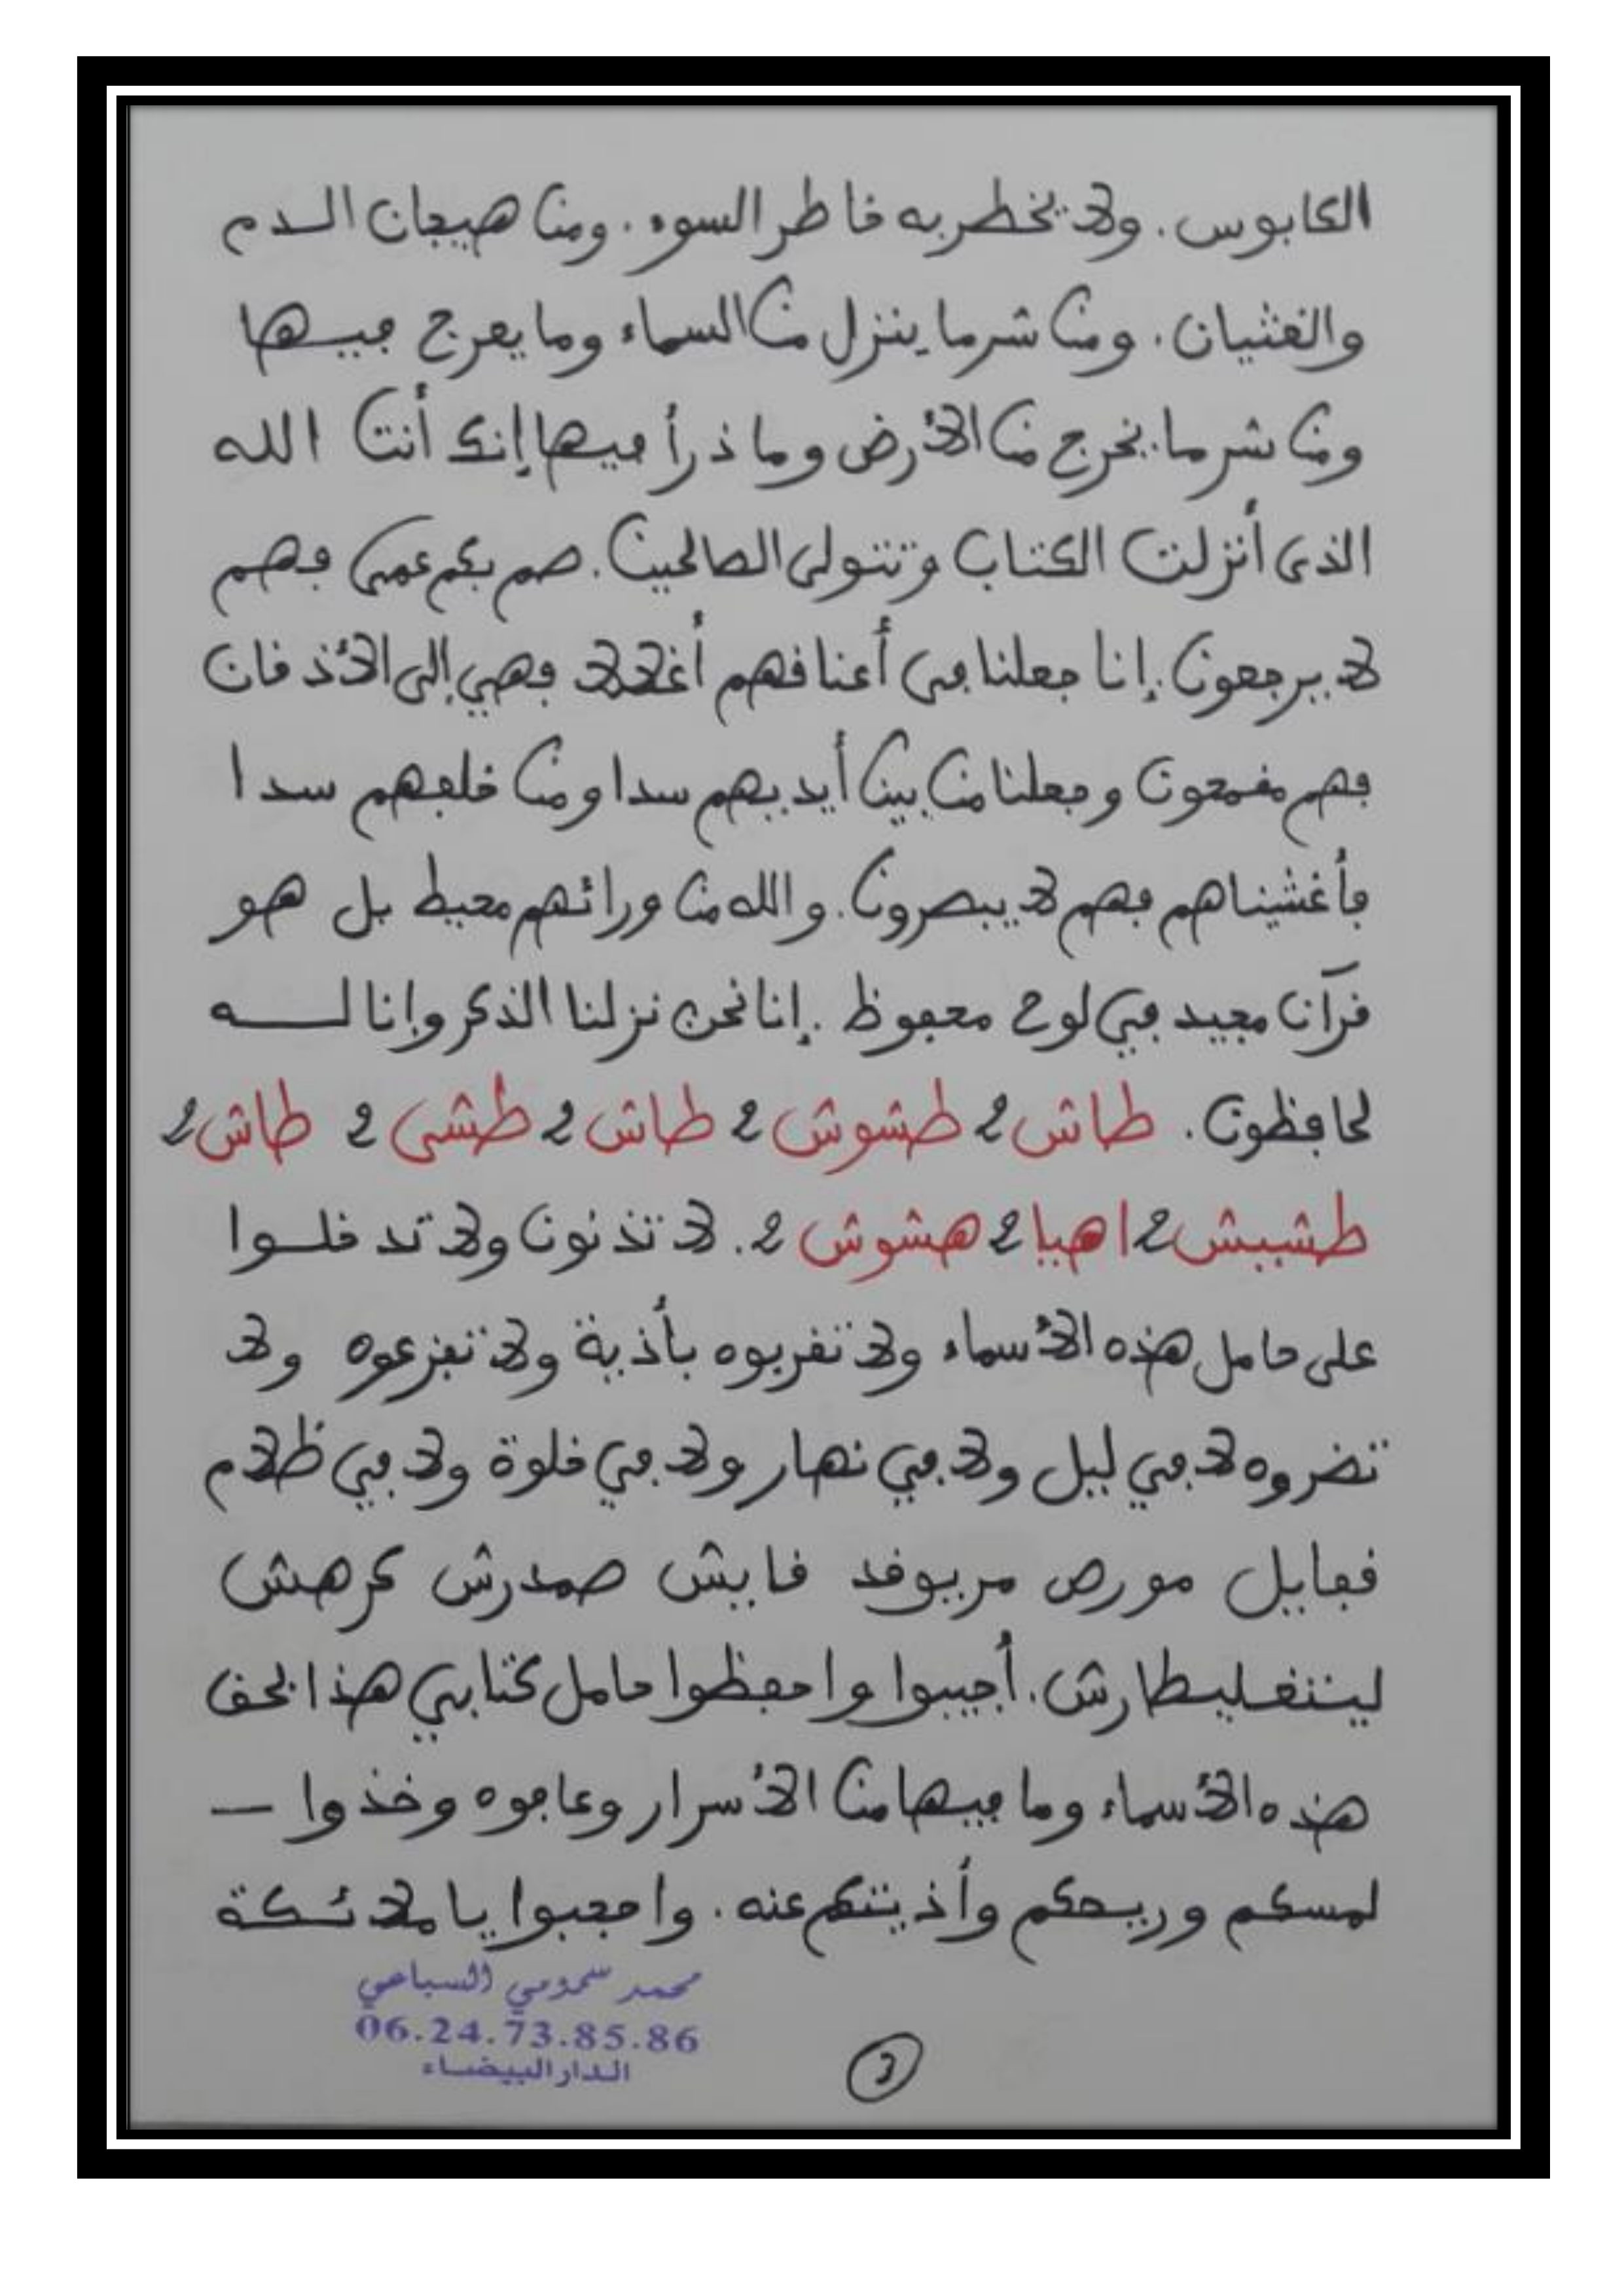 الكابوس . ولا يخطر به خاطر السوء . ومن هيجان الدم
والغثيان . ومن شر ما ينزل من السماء وما يعرج فيها
ومن شر ما يخرج من الأرض وما ذرأ فيها إنك أنت الله
الذى أنزلت الكتاب وتتولى الصالحين . صم بكم عمي فهم
لا يرجعون . إنا جعلنا في أعناقهم أغلالا فهي إلى الأذقان
فهم مقمحون وجعلنا من بين أيديهم سدا ومن خلفهم سدا
فأغشيناهم فهم لا يبصرون . والله من ورائهم محيط بل هو
قرآن مجيد في لوح محفوظ . إنا نحن نزلنا الذكر وإنا له
لحافظون . طاش 2 طشوش 2 طاش 2 طشى 2 طاش 2
طشيش 2 اهيا 2 هشوش 2 . لا تذنون ولا تدخلوا
على حامل هذه الأسماء ولا تقربوه بأذية ولا تفزعوه ولا
تضروه لا في ليل ولا في نهار ولا في خلوة ولا في ظلام
مورص صمدرش كرهش
أجيبوا واحفظوا حامل كتابي هذا بحق
هذه الأسماء وما فيها من الأسرار وعافوه وخذوا
لمسكم وريحكم وأذيتكم عنه . واحجبوا يا ملائكة
محمد سمومي السباعي
06.24.73.85.86
الدار البيضاء
3